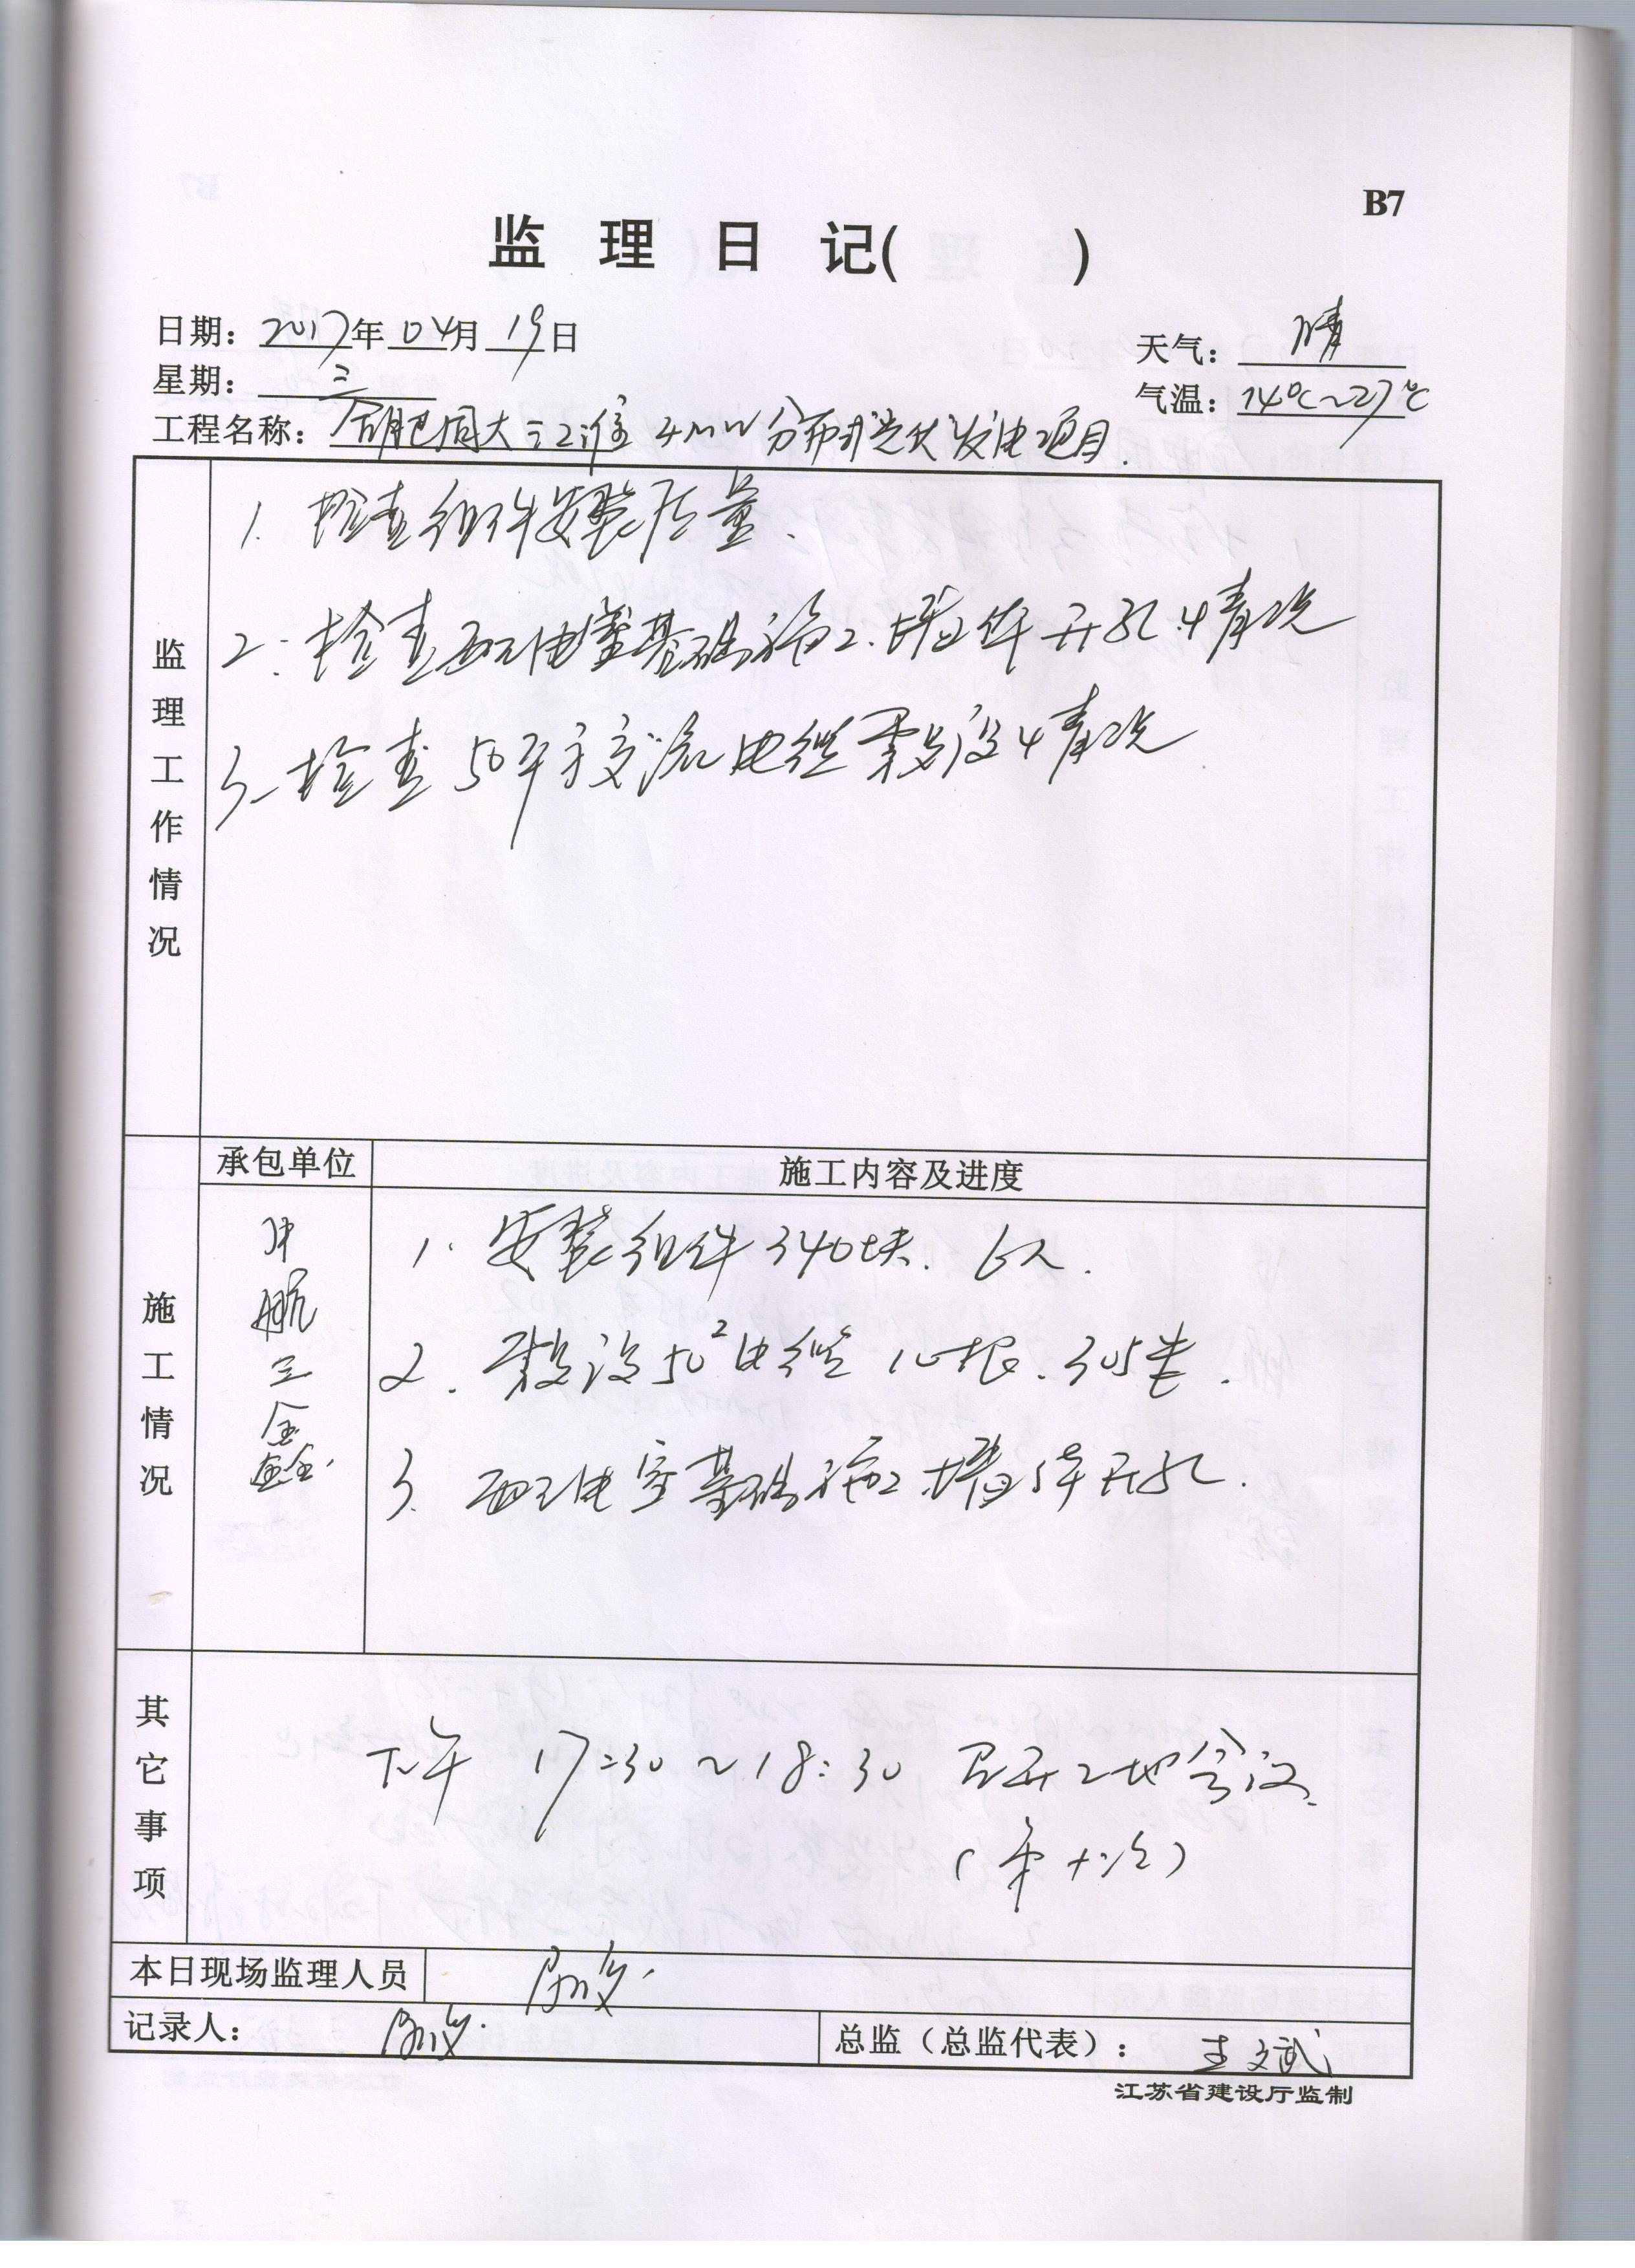 B7
监理日记( )
日期：2017年04月19日
天气：晴
星期：三
气温：14℃~27℃
工程名称：合肥周大江淮4MW分布式光伏发电项目.
监理工作情况
1. 检查组件安装质量.
2. 检查配电室基础施工.墙体开孔情况
3. 检查50平方交流电缆敷设情况
承包单位
施工内容及进度
施工情况
中航三鑫.
1. 安装组件340块. 6人.
2. 敷设50²电缆10根. 305米.
3. 配电室基础施工.墙体开孔.
其它事项
下午 17:30~18:30 召开工地会议.
(第十次)
本日现场监理人员
记录人：
总监（总监代表）：王文武
江苏省建设厅监制